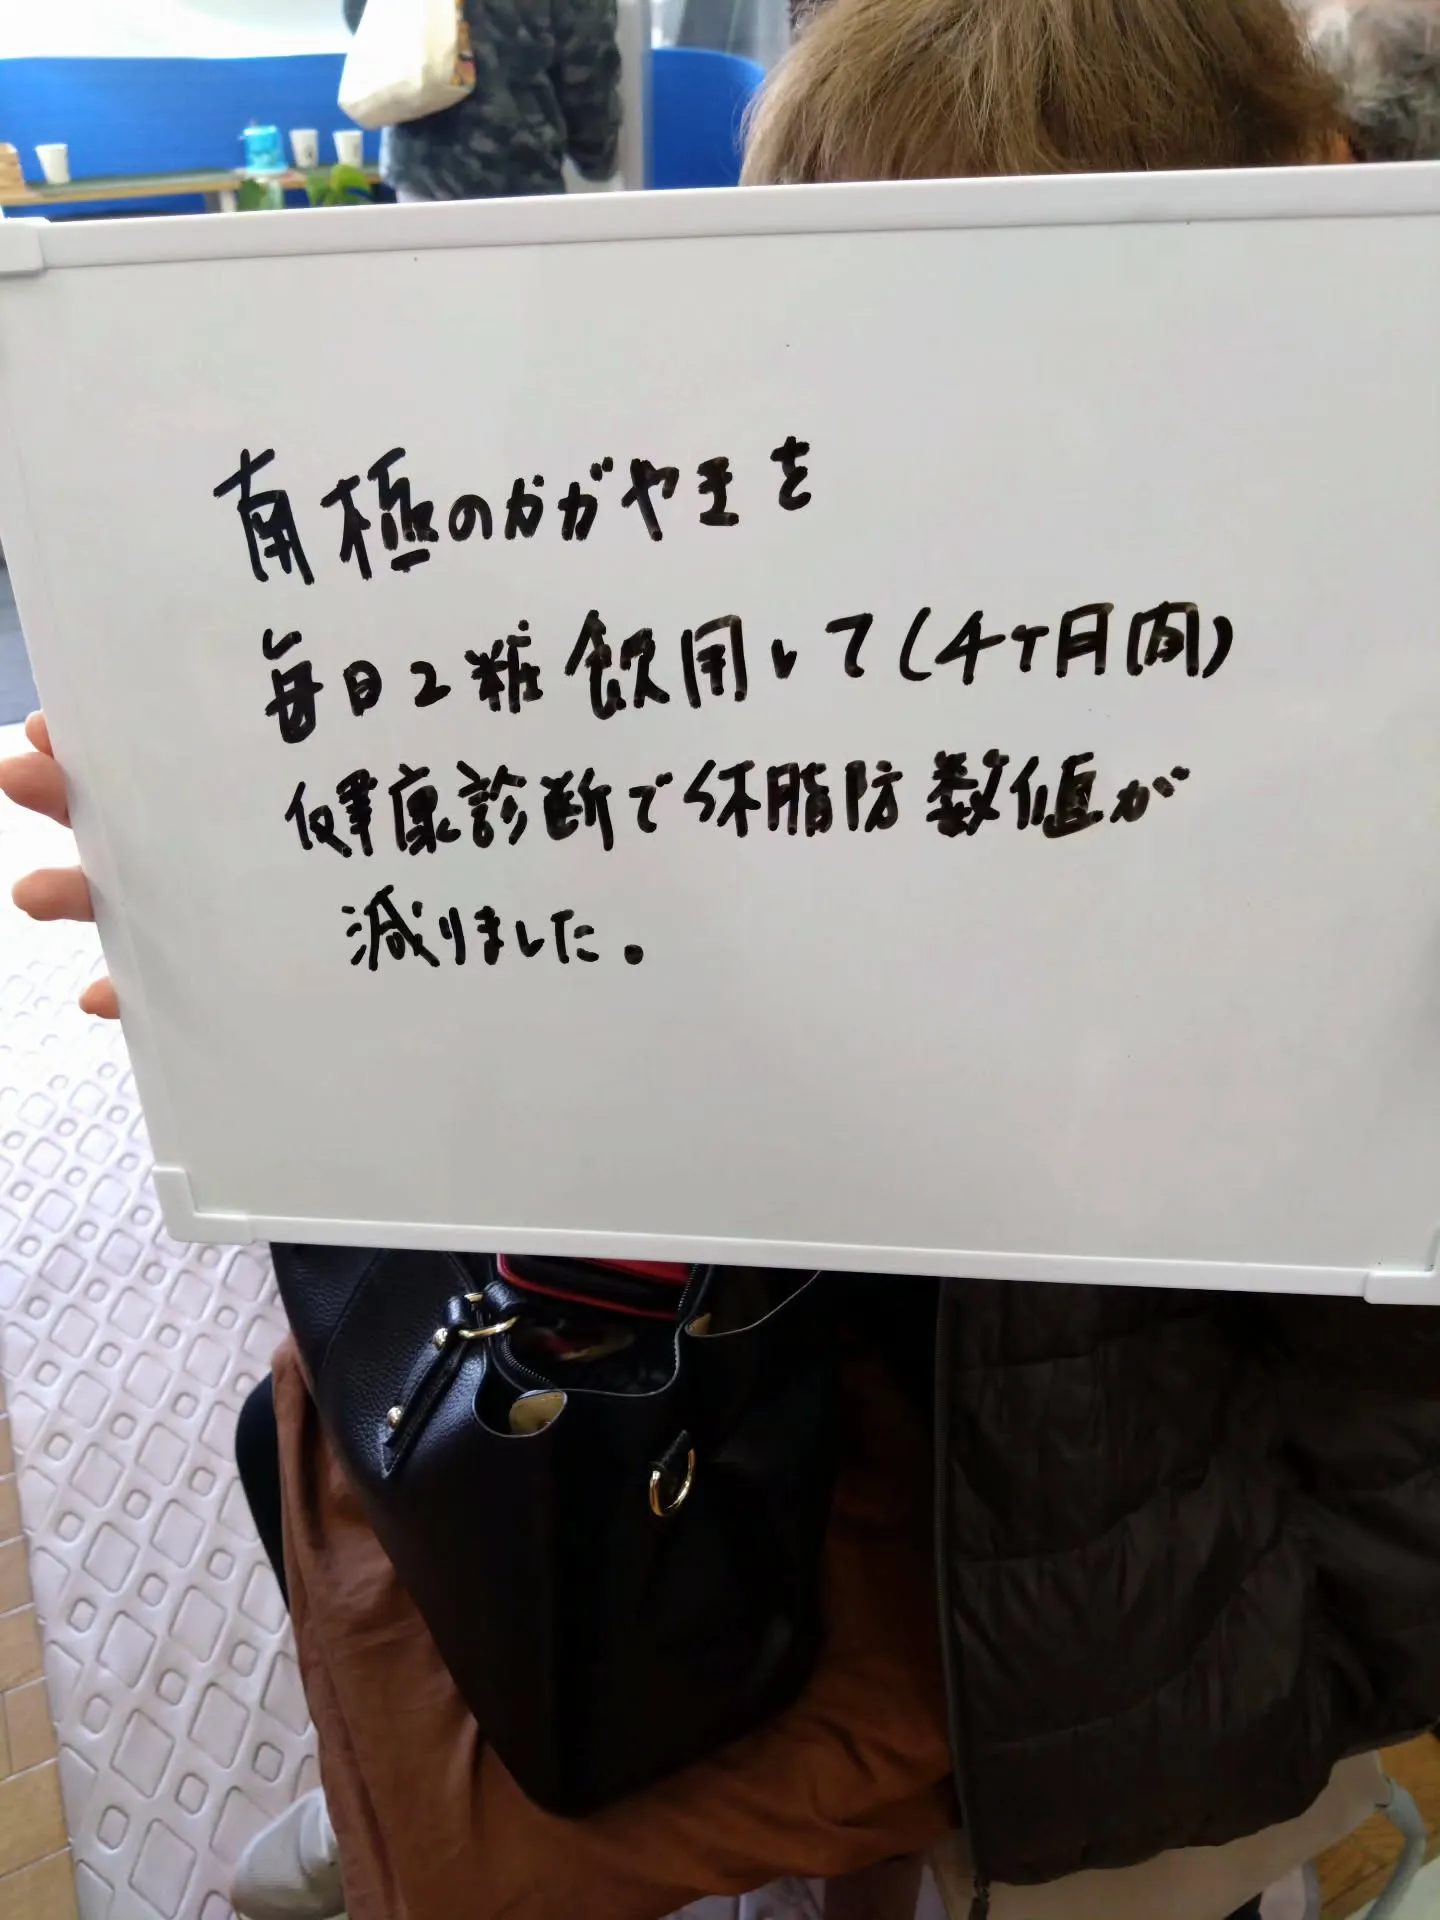 南極のかがやきを
毎日2粒飲用して(4ヶ月間)
健康診断で体脂肪数値が
減りました。